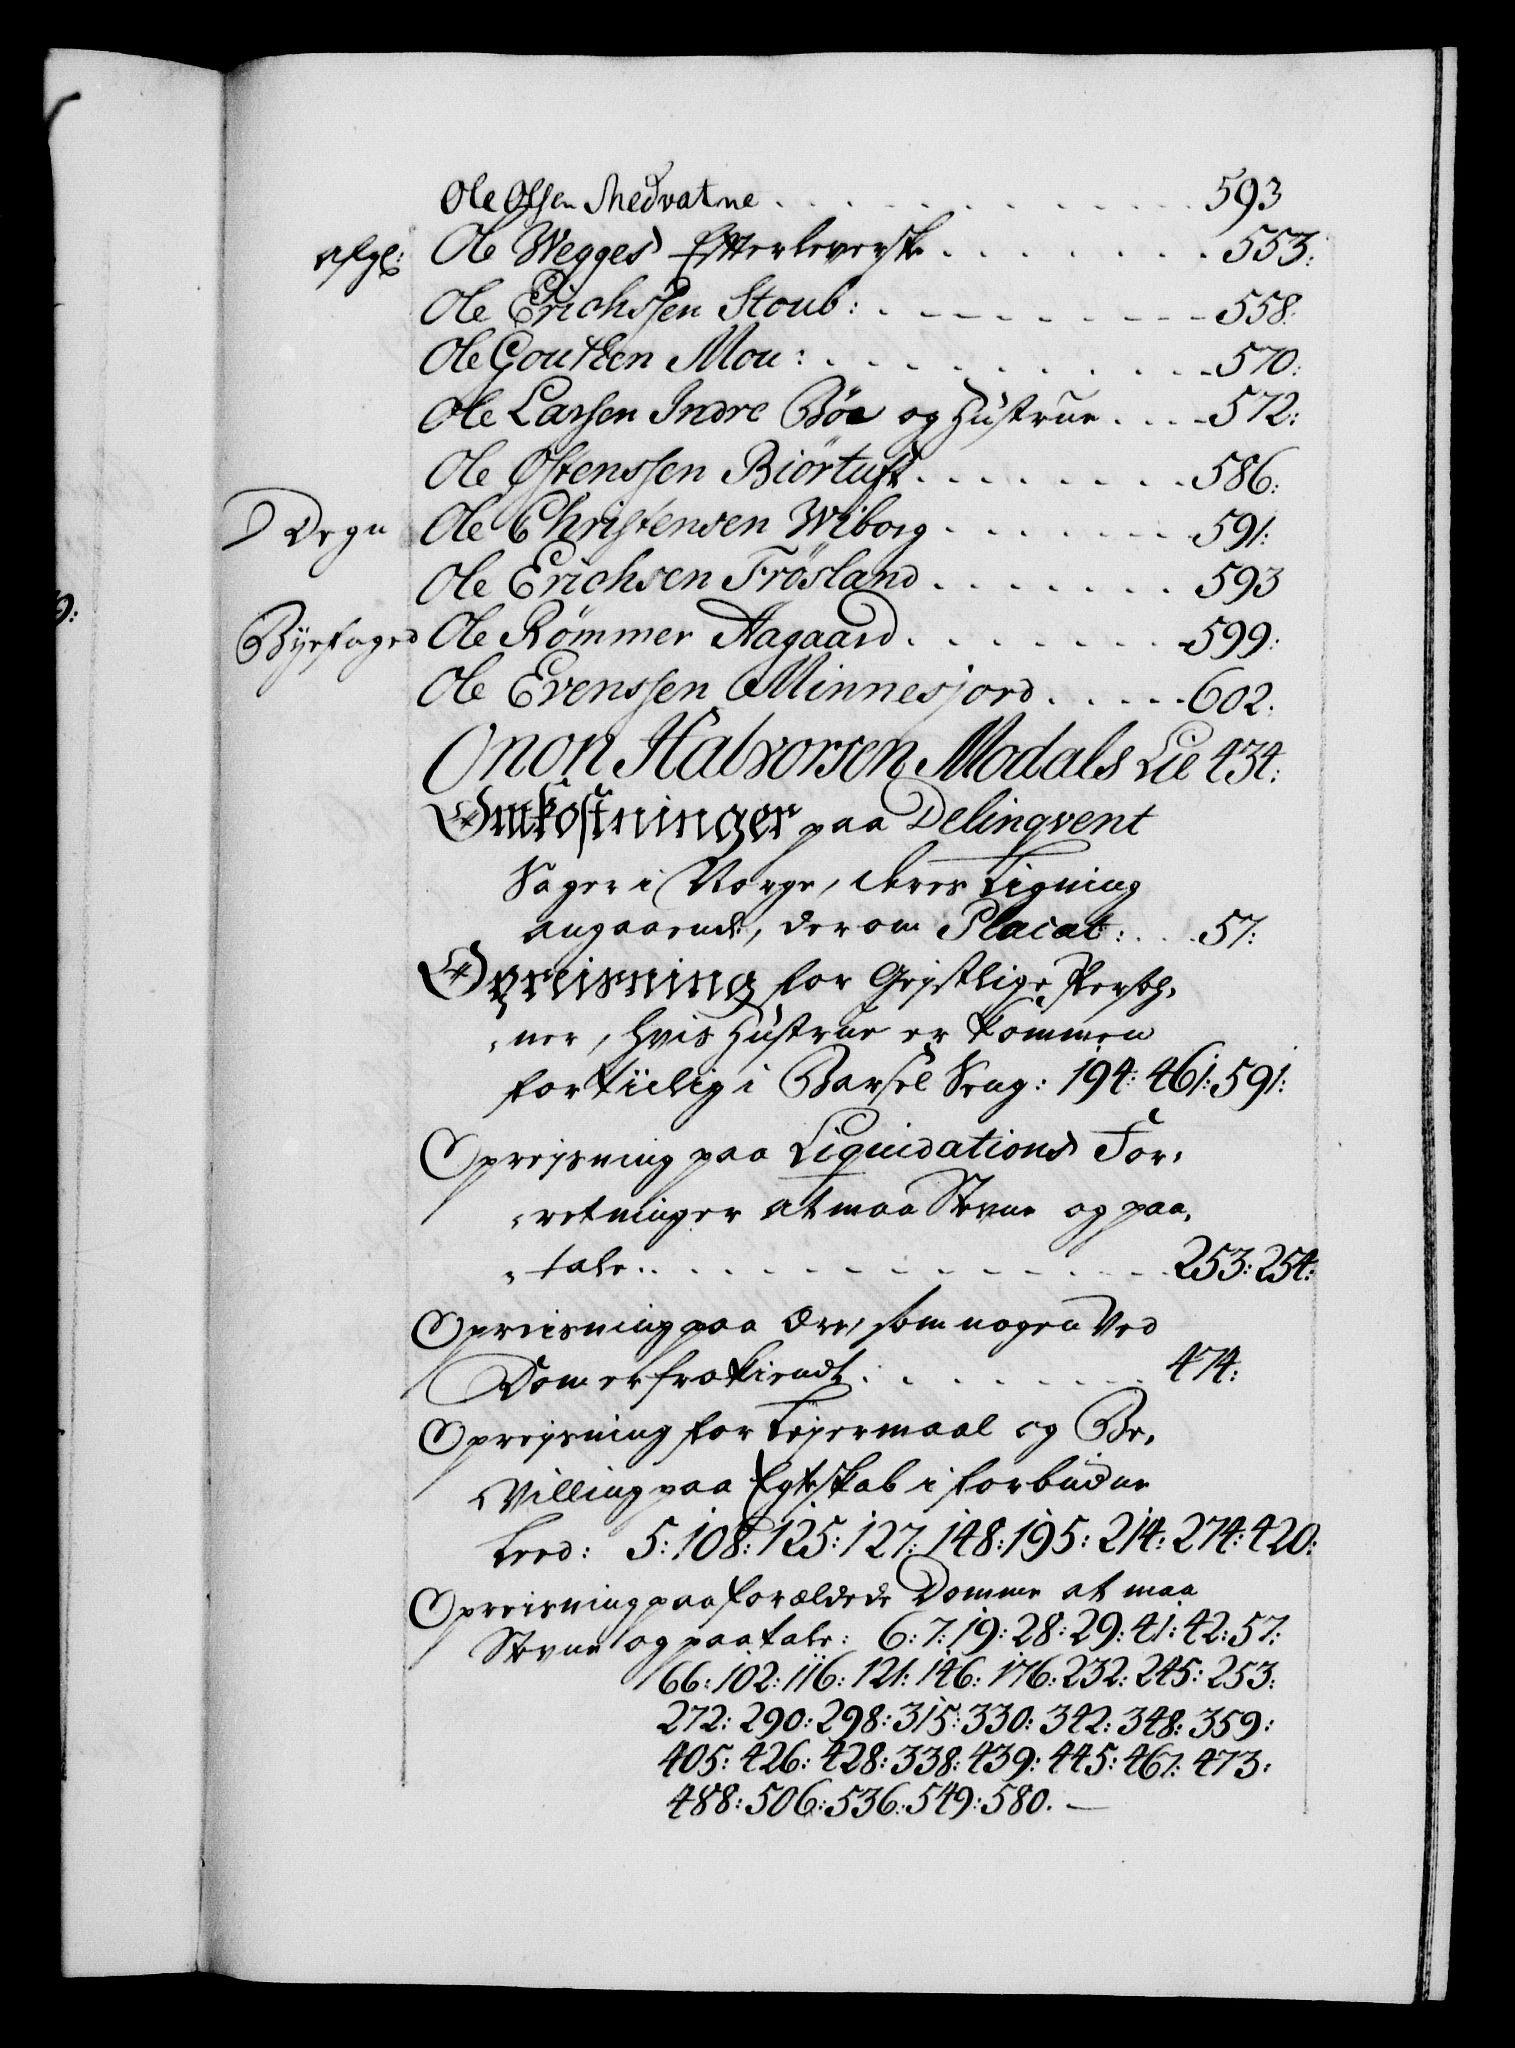 Ole Olsen Medvatne . . . . . . . . . . 593
afg: Ole Wegges Efterleverske . . . . . . . 553:
Ole Erichssen Stoub: . . . . . . . . . 558:
Ole Goutsen Mou: . . . . . . . . . . 570:
Ole Larsen Indre Böe og Hustrue . . . . 572:
Ole Østenssen Biörtuft . . . . . . . . 586:
Degn Ole Christensen Wiborg . . . . . . . 591:
Ole Erichsen Frösland . . . . . . . 593
Byefoged Ole Römmer Aagaard . . . . . . . 599:
Ole Evenssen Minnesjord . . . . . 602.
Onon Halvorsen Modals Lie 434:
Omkostninger paa Delinqvent
Sager i Norge, deres Ligning
angaaende, derom Placat: . . . 57:
Opreisning for Gejstlige Persoh,
,ner, hvis Hustrue er kommen
fortiilig i Barsel Seng: 194: 461: 591:
Oprejsning paa Liquidations For,
,retninger at maa Stevne og paa,
,tale . . . . . . . . . . . . 253: 254:
Opreisning paa Ære, som nogen ved
Dom er frakiendt . . . . . . . . 474:
Oprejsning for Lejermaal og Be,
,villing paa Egteskab i forbudne
Leed: 5: 108: 125: 127: 148: 195: 214: 274: 420:
Opreisning paa forældede Domme at maa
Stevne og paatale: 6: 7: 19: 28: 29: 41: 42: 57:
66: 102: 116: 121: 146: 176: 232: 245: 253:
272: 290: 298: 315: 330: 342: 348: 359:
405: 426: 428: 338: 439: 445: 467: 473:
488: 506: 536: 549: 580. —